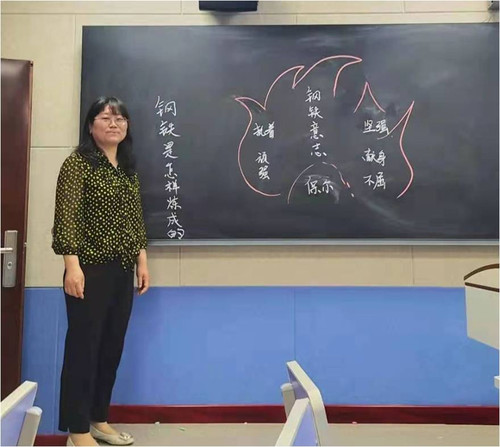 钢铁是怎样炼成的
执着
顽强
钢铁意志
保尔
坚强
献身
不屈